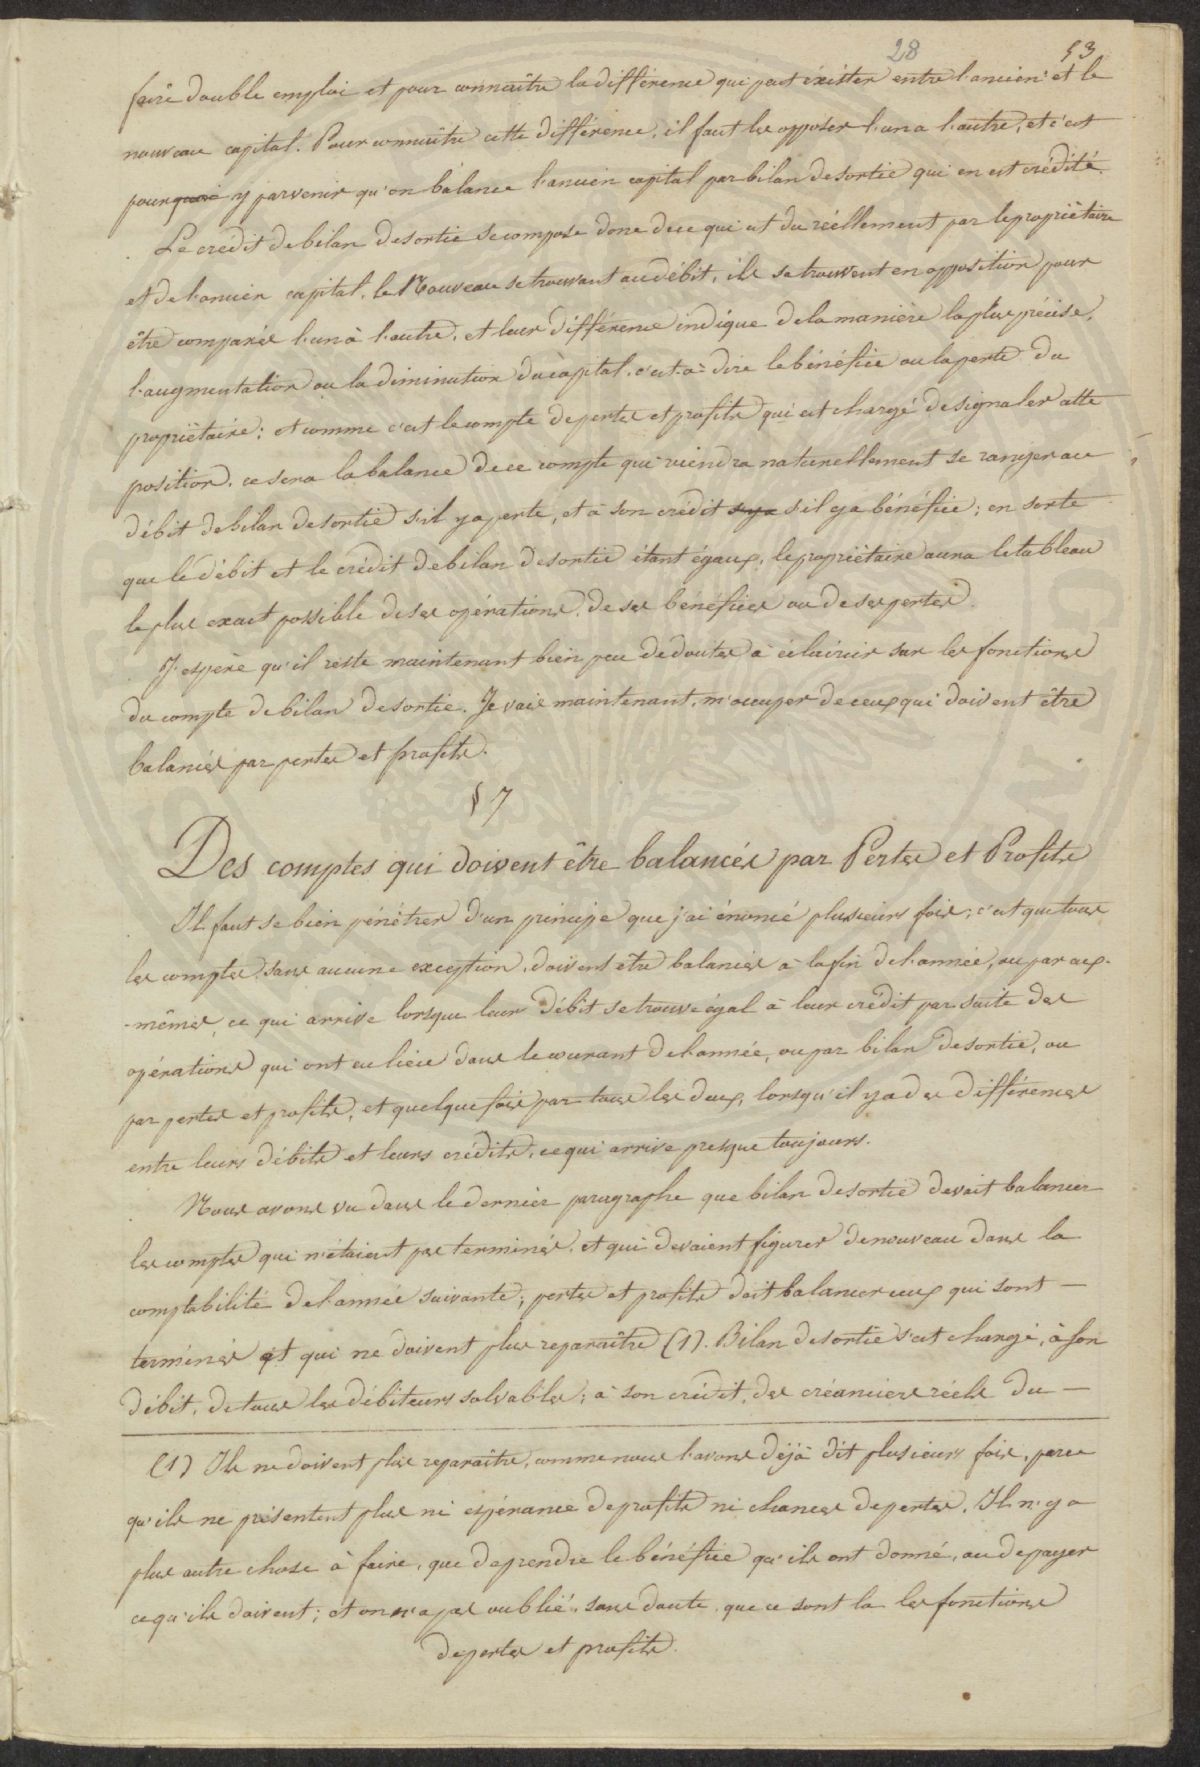 28 53
faire double emploi et pour connaître la différence qui peut éxister entre l'ancien et le
nouveau capital. Pour connaître cette différence, il faut les opposer l'un a l'autre, et c'est
pour quoi y parvenir qu'on balance l'ancien capital par bilan de sortie qui en est crédité.
Le crédit de bilan de sortie se compose donc de ce qui est du réellement par le propriétaire
et de l'ancien capital, le Nouveau se trouvant au débit, ils se trouvent en opposition pour
être comparés l'un à l'autre, et leur différence indique de la manière la plus précise,
l'augmentation ou la diminution du capital, c'est-à-dire le bénéfice ou la perte du
propriétaire; et comme c'est le compte de pertes et profits qui est chargé de signaler cette
position, ce sera la balance de ce compte qui viendra naturellement se ranger au
débit de bilan de sortie s'il y a perte, et à son crédit s'il y a bénéfice; en sorte
que le débit et le crédit de bilan de sortie étant égaux, le propriétaire aura le tableau
le plus exact possible de ses opérations, de ses bénéfices ou de ses pertes.
J'espère qu'il reste maintenant bien peu de doutes à éclaircir sur les fonctions
du compte de bilan de sortie. Je vais maintenant, m'occuper de ceux qui doivent être
balancés par pertes et profits.
§ 7
Des comptes qui doivent être balancés par Pertes et Profits
Il faut se bien pénétrer d'un principe que j'ai énoncé plusieurs fois; c'est que tous
les comptes sans aucune exception, doivent être balancés à la fin de l'année, ou par eux-
-mêmes, ce qui arrive lorsque leur débit se trouve égal à leur crédit par suite des
opérations qui ont eu lieu dans le courant de l'année, ou par bilan de sortie, ou
par pertes et profits, et quelquefois par tous les deux, lorsqu'il y a des différences
entre leurs débits et leurs crédits, ce qui arrive presque toujours.
Nous avons vu dans le dernier paragraphe que bilan de sortie devait balancer
les comptes qui n'étaient pas terminés, et qui devaient figurer de nouveau dans la
comptabilité de l'année suivante; pertes et profits doit balancer ceux qui sont —
terminés et qui ne doivent plus reparaître (1). Bilan de sortie s'est chargé, à son
débit, de tous les débiteurs solvables; à son crédit, des créanciers réels du —
(1) Ils ne doivent plus reparaître, comme nous l'avons déjà dit plusieurs fois, parce
qu'ils ne présentent plus ni espérance de profits ni chances de pertes. Il n'y a
plus autre chose à faire, que de prendre le bénéfice qu'ils ont donné, ou de payer
ce qu'ils doivent; et on n'a pas oublié, sans doute, que ce sont la les fonctions
de pertes et profits.